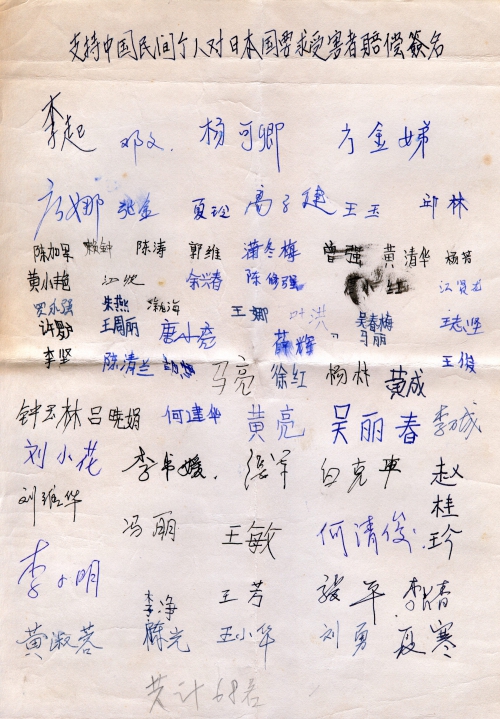 支持中国民间个人对日本国要求受害者赔偿签名
李起 邓文. 杨可卿 方金娣
唐娜 张金 夏玲 高子建 王玉 邱林
陈加果 赖钟 陈涛 郭维 蒲冬梅 曾强 黄清华 杨芳
黄小艳 江悦 余兴春 陈修强
罗永强 朱燕 王娜 叶洪 吴春梅 王志坚
王周丽 唐小亮 薛辉 马丽
李坚 陈清兰 马亮 徐红 杨林 黄成 王俊
钟云林 吕晓娟 何建华 黄亮 吴丽春 李城
刘小花 李书媛. 张军 白克平 赵桂珍
刘维华 冯丽 王敏 何清俊
李小明 李净 王芳 骏平 李倩
黄淑蓉 滕光 王小华 刘勇 夏寒
共计68名